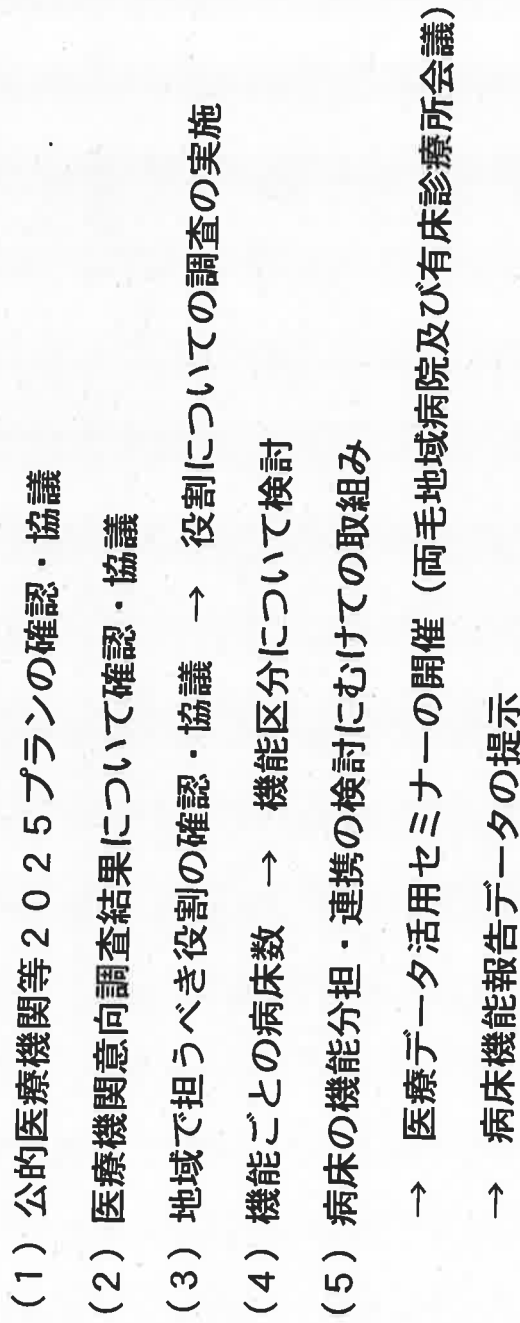 （１）公的医療機関等２０２５プランの確認・協議
（２）医療機関意向調査結果について確認・協議
（３）地域で担うべき役割の確認・協議　→　役割についての調査の実施
（４）機能ごとの病床数　→　機能区分について検討
（５）病床の機能分担・連携の検討にむけての取組み
→　医療データ活用セミナーの開催（両毛地域病院及び有床診療所会議）
→　病床機能報告データの提示